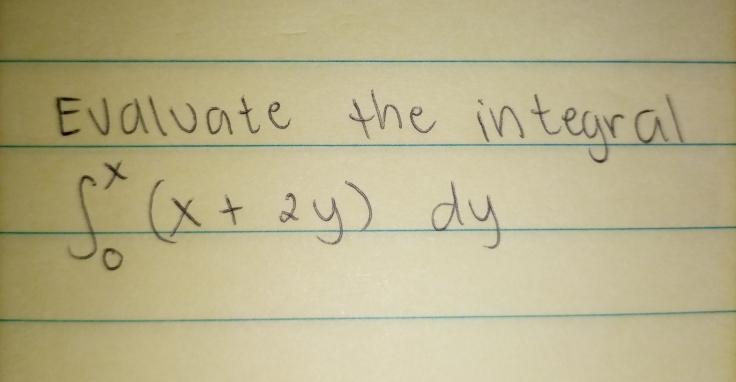 Evaluate the integral
∫₀ˣ (x + 2y) dy